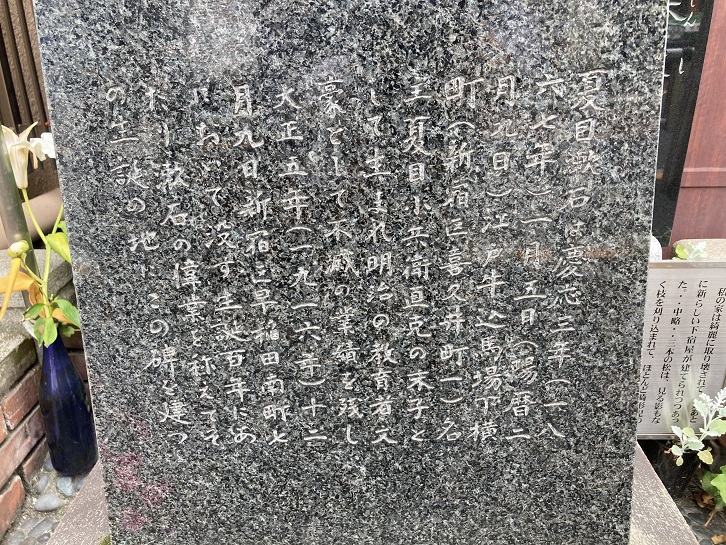 夏目漱石は慶応三年（一八
六七年）一月五日（陽暦二
月九日）江戸牛込馬場下横
町（新宿区喜久井町一）名
主夏目小兵衛直克の末子と
して生まれ明治の教育者文
豪として不滅の業績を残し
大正五年（一九一六年）十二
月九日新宿区早稲田南町七
において没す生誕百年にあ
たり漱石の偉業を称えてそ
の生誕の地にこの碑を建つ
私の家は綺麗に取り壊されて
に新らしい下宿屋が建てられつつあ
た・・中略・・三本の松は、見る影もな
く枝を刈り込まれて、ほとんど